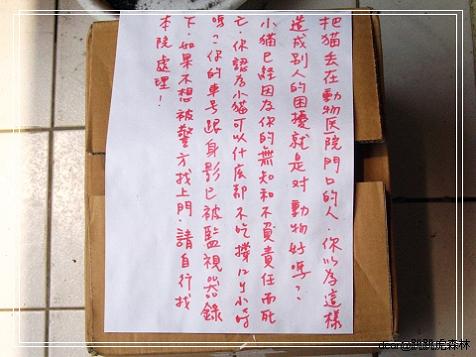 把猫丟在動物医院門口的人．你以為這樣
造成別人的困擾就是对動物好嗎？
小猫已經因為你的無知和不負責任而死
亡．你認為小猫可以什麼都不吃撐12个小時
嗎？你的車号跟身影已被監視器錄
下．如果不想被警方找上門．請自行找
本院處理！
dcan@跳跳虎森林